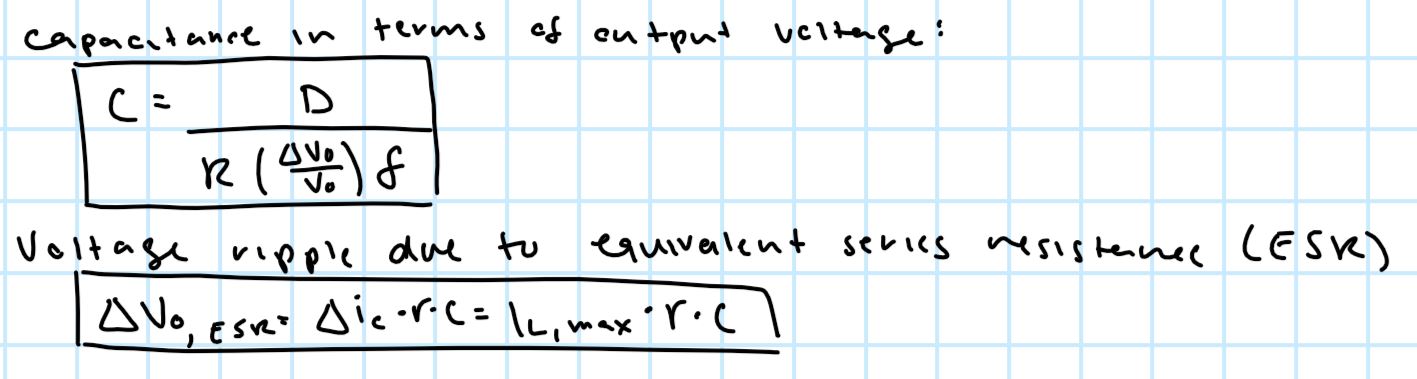 capacitance in terms of output voltage:
C = D / (R (ΔV₀/V₀) f)
Voltage ripple due to equivalent series resistance (ESR)
ΔV₀, ESR = Δi_c · r · C = I_L, max · r · C